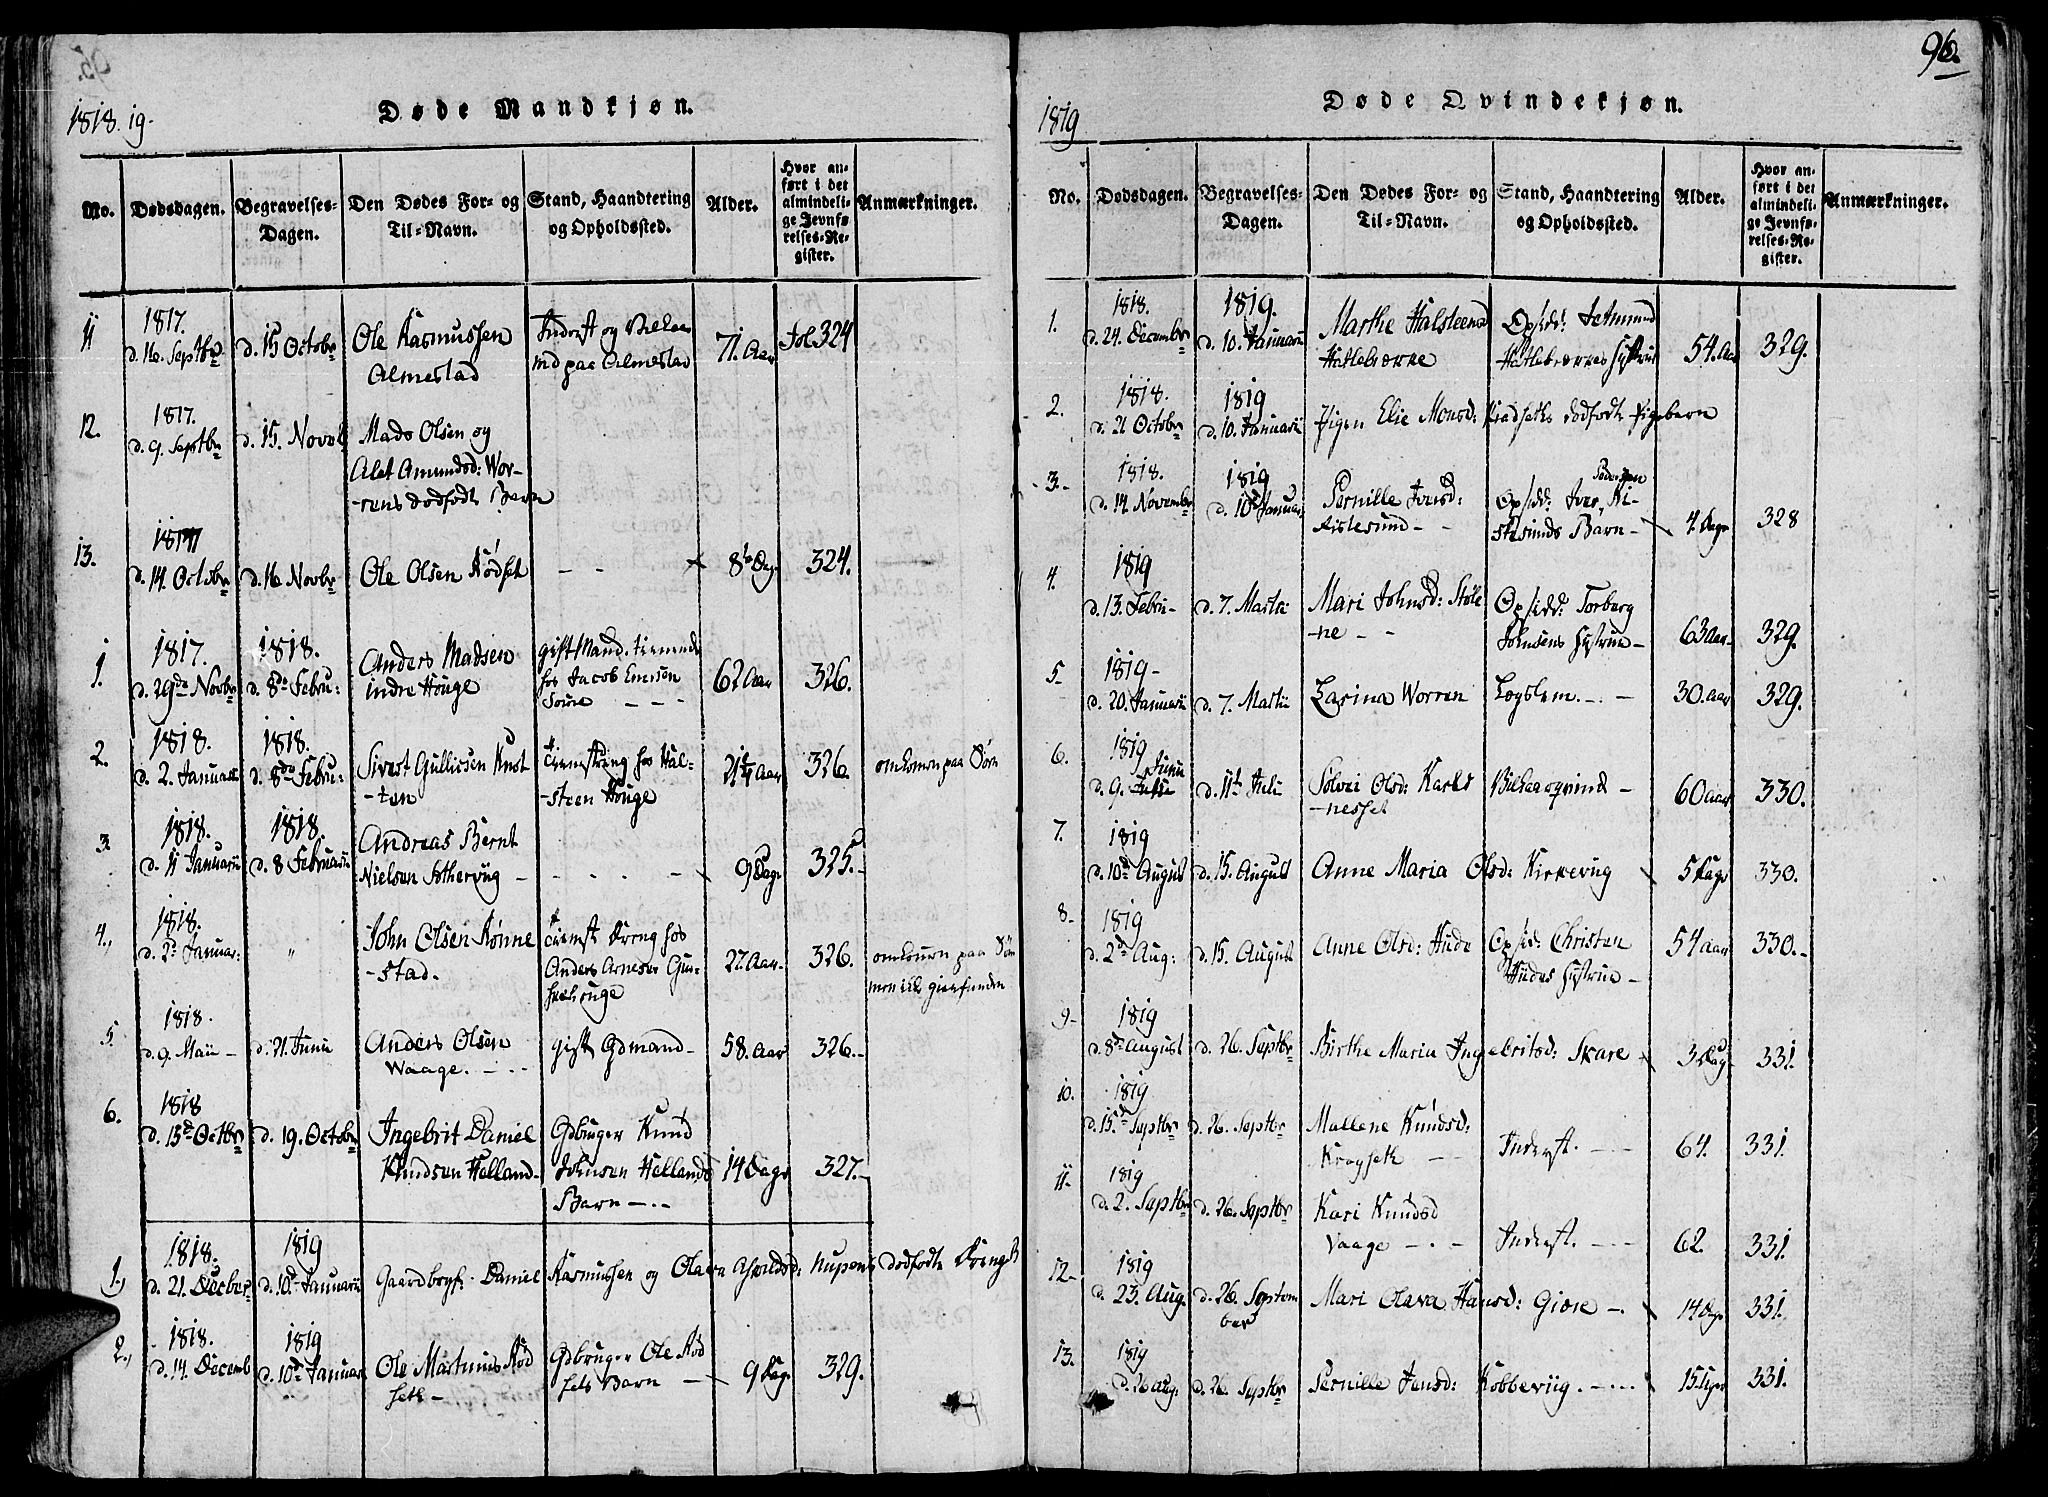 96.
1818. 19.
Døde Mandkjøn.
No. Dødsdagen. Begravelses-Dagen. Den Dødes For- og Til-Navn. Stand, Haandtering og Opholdssted. Alder. Hvor anført i det almindelige Jevnførelses-Register. Anmærkninger.
11 1817. d. 16. Septbr d. 15 Octobr Ole Rasmussen Almestad Inderst og paa Almestad 71. Aar Fol 324
12. 1817. d. 9. Septbr d. 15. Novb Mads Olsen og Alet Amundsd: Worrens dødfødte Barn
13. 1817 d. 14. Octobr d. 16 Novbr Ole Olsen Rødset - - 8te Dg. 324.
1. 1817. d. 29de Novbr 1818. d. 8de Febru: Anders Madsen indre Houge gift Mand, tienende hos Jacob 62 Aar 326.
2. 1818. d. 2. Januar 1818. d. 8de Febru: Sivert Gullicsen Knotten hos Halsteen Houge 21 1/4 Aar 326. omkomen paa Søen
3. 1818. d. 11 Januarii 1818. d. 8 Februarii Andreas Bernt Nielsen - - - - 9 Dage 325.
4. 1818. d. 2d Januar: " John Olsen Rønnestad. Dreng hos Anders Arnesen 27. Aar 326. omkomen paa Søen men ikke gienfunden
5. 1818. d. 9. Maii - d. 21. Junii Anders Olsen Waage. gift Gdmand - 58. Aar 326.
6. 1818 d. 13d Octbr d. 19. Octobr Ingebrit Daniel Knudsen Helland - Gdbruger Knud Johnsen Hellands Barn - 14 Dage 327.
1. 1818. d. 21. Decber 1819 d. 10d Januarii Gaardbrgf. Daniel Rasmussen og Olava dødfødte Dreng B
2. 1818. d. 14. Decemb 1819 d. 10d Januar Ole Martinus Rødseth - Gdbruger Ole Rødsets Barn - 9 Dage 329.
1819
Døde Qvindekjøn.
No. Dødsdagen. Begravelses-Dagen. Den Dødes For- og Til-Navn. Stand, Haandtering og Opholdssted. Alder. Hvor anført i det almindelige Jevnførelses-Register. Anmærkninger.
1. 1818. d. 24. Decembr 1819. d. 10. Januarii Marthe Halsteensd Hatlebrække Opsidd: Hustrue 54. Aar 329.
2. 1818. d. 21 Octobr 1819 d. 10. Januarii Pigen Elie Monsd: dødfødte Pigebarn
3. 1818. d. 14. Novembr 1819 d. 10d Januar Pernille Iversd: - - Opsidd: Iver Barn - 4. Dage 328
4. 1819 d. 13. Febru - d. 7. Martii Mari Johnsd: Støle-ne - - Opsidd: Torberg Johnsens Hystrue - 63 Aar 329.
5. 1819 - d. 20. Januarii d. 7. Martii Zarina Worren Logslem. - 30. Aar 329.
6. 1819 d. 9. Junii d. 11t Julii Solvei Olsd: 60 Aar 330.
7. 1819 d. 10d August d. 15. August Anne Maria Olsd: Kirkevug 5 Dage 330.
8. 1819 d. 2d Aug: d. 15. August Anne Olsd: Hude Opsid: Christen Hudes Hystrue - 54 Aar 330.
9. 1819 d. 8d August d. 26. Septbr Birthe Maria Ingebritsd: Skare 3 Dag 331.
10. 1819 d. 15d Septbr d. 26. Septbr Mallene Knudsd: Kragseth - - Inderst. - 64. 331.
11. 1819 d. 2. Septbr d. 26. Septbr Kari Knudsd Vaage - - Inderst. - 62. 331.
12. 1819 d. 23. Aug. d. 26. September Mari Olava Hansd: Giøre - 14 Dge 331.
13. 1819 d. 26 Aug. d. 26. Septbr Pernille Jensd: Kobbeviig. - - 15. 331.